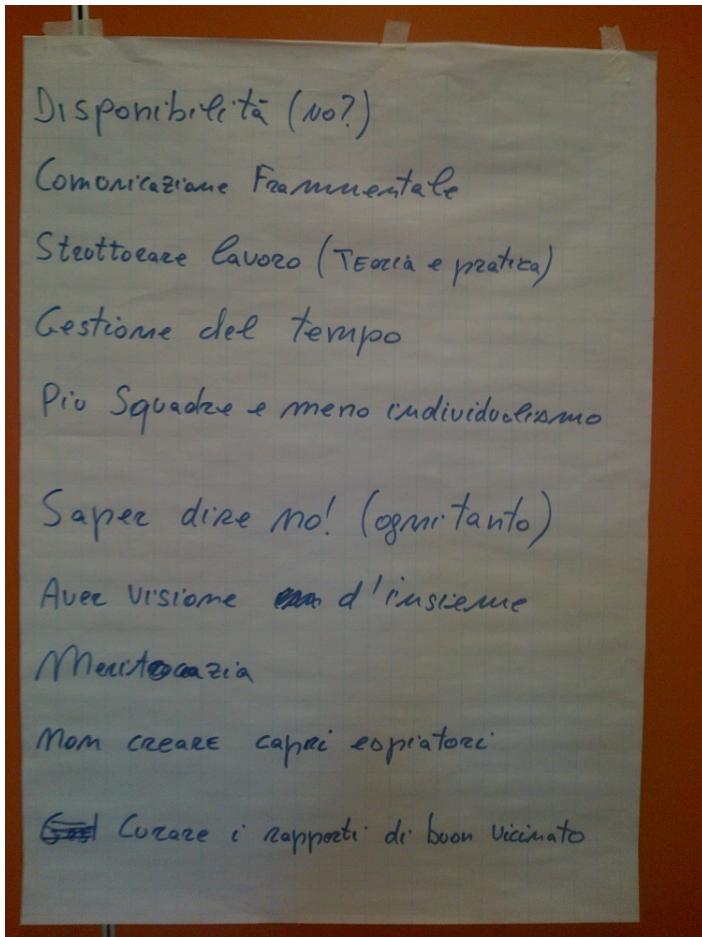 Disponibilità (No?)
Comunicazione Frammentale
Strutturare lavoro (TEoria e pratica)
Gestione del tempo
Più Squadre e meno individualismo
Saper dire no! (ogni tanto)
Aver visione d'insieme
Meritocrazia
Non creare capri espiatori
Curare i rapporti di buon vicinato